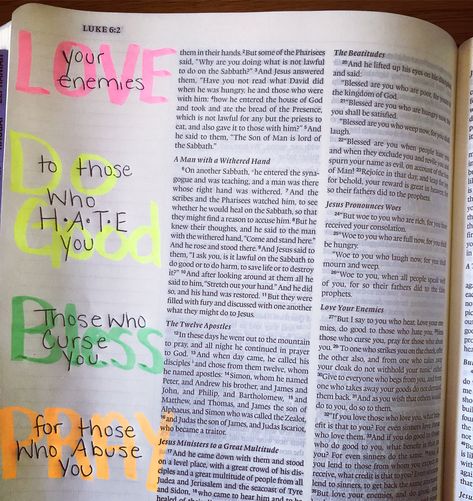 LUKE 6:2
LOVE
your
enemies
Do
to those
Who
H•A•T•E
Good
you
Bless
Those who
Curse
You
PRAY
for those
Who Abuse
You
them in their hands. ²But some of the Pharisees
said, "Why are you doing what is not lawful
to do on the Sabbath?" ³And Jesus answered
them, "Have you not read what David did
when he was hungry, he and those who were
with him: ⁴how he entered the house of God
and took and ate the bread of the Presence,
which is not lawful for any but the priests to
eat, and also gave it to those with him?" ⁵And
he said to them, "The Son of Man is lord of
the Sabbath."
A Man with a Withered Hand
⁶On another Sabbath, he entered the syna-
gogue and was teaching, and a man was there
whose right hand was withered. ⁷And the
scribes and the Pharisees watched him, to see
whether he would heal on the Sabbath, so that
they might find a reason to accuse him. ⁸But he
knew their thoughts, and he said to the man
with the withered hand, "Come and stand here."
And he rose and stood there. ⁹And Jesus said to
them, "I ask you, is it lawful on the Sabbath to
do good or to do harm, to save life or to destroy
it?" ¹⁰And after looking around at them all he
said to him, "Stretch out your hand." And he did
so, and his hand was restored. ¹¹But they were
filled with fury and discussed with one another
what they might do to Jesus.
The Twelve Apostles
¹²In these days he went out to the mountain
to pray, and all night he continued in prayer
to God. ¹³And when day came, he called his
disciples and chose from them twelve, whom
he named apostles: ¹⁴Simon, whom he named
Peter, and Andrew his brother, and James and
John, and Philip, and Bartholomew, ¹⁵and
Matthew, and Thomas, and James the son of
Alphaeus, and Simon who was called the Zealot,
¹⁶and Judas the son of James, and Judas Iscariot,
who became a traitor.
Jesus Ministers to a Great Multitude
¹⁷And he came down with them and stood
on a level place, with a great crowd of his dis-
ciples and a great multitude of people from all
Judea and Jerusalem and the seacoast of Tyre
and Sidon, ¹⁸who came to hear him and to be
The Beatitudes
²⁰And he lifted up his eyes on his disciples,
and said:
"Blessed are you who are poor, for yours is
the kingdom of God.
²¹"Blessed are you who are hungry now, for
you shall be satisfied.
"Blessed are you who weep now, for you shall
laugh.
²²"Blessed are you when people hate you
and when they exclude you and revile you and
spurn your name as evil, on account of the Son
of Man! ²³Rejoice in that day, and leap for joy,
for behold, your reward is great in heaven; for
so their fathers did to the prophets.
Jesus Pronounces Woes
²⁴"But woe to you who are rich, for you have
received your consolation.
²⁵"Woe to you who are full now, for you shall
be hungry.
"Woe to you who laugh now, for you shall
mourn and weep.
²⁶"Woe to you, when all people speak well
of you, for so their fathers did to the false
prophets.
Love Your Enemies
²⁷"But I say to you who hear, Love your ene-
mies, do good to those who hate you, ²⁸bless
those who curse you, pray for those who abuse
you. ²⁹To one who strikes you on the cheek, offer
the other also, and from one who takes away
your cloak do not withhold your tunic either.
³⁰Give to everyone who begs from you, and from
one who takes away your goods do not demand
them back. ³¹And as you wish that others would
do to you, do so to them.
³²"If you love those who love you, what bene-
fit is that to you? For even sinners love those
who love them. ³³And if you do good to those
who do good to you, what benefit is that to
you? For even sinners do the same. ³⁴And if
you lend to those from whom you expect to
receive, what credit is that to you? Even sin-
ners lend to sinners, to get back the same amount.
³⁵But love your enemies, and do good, and